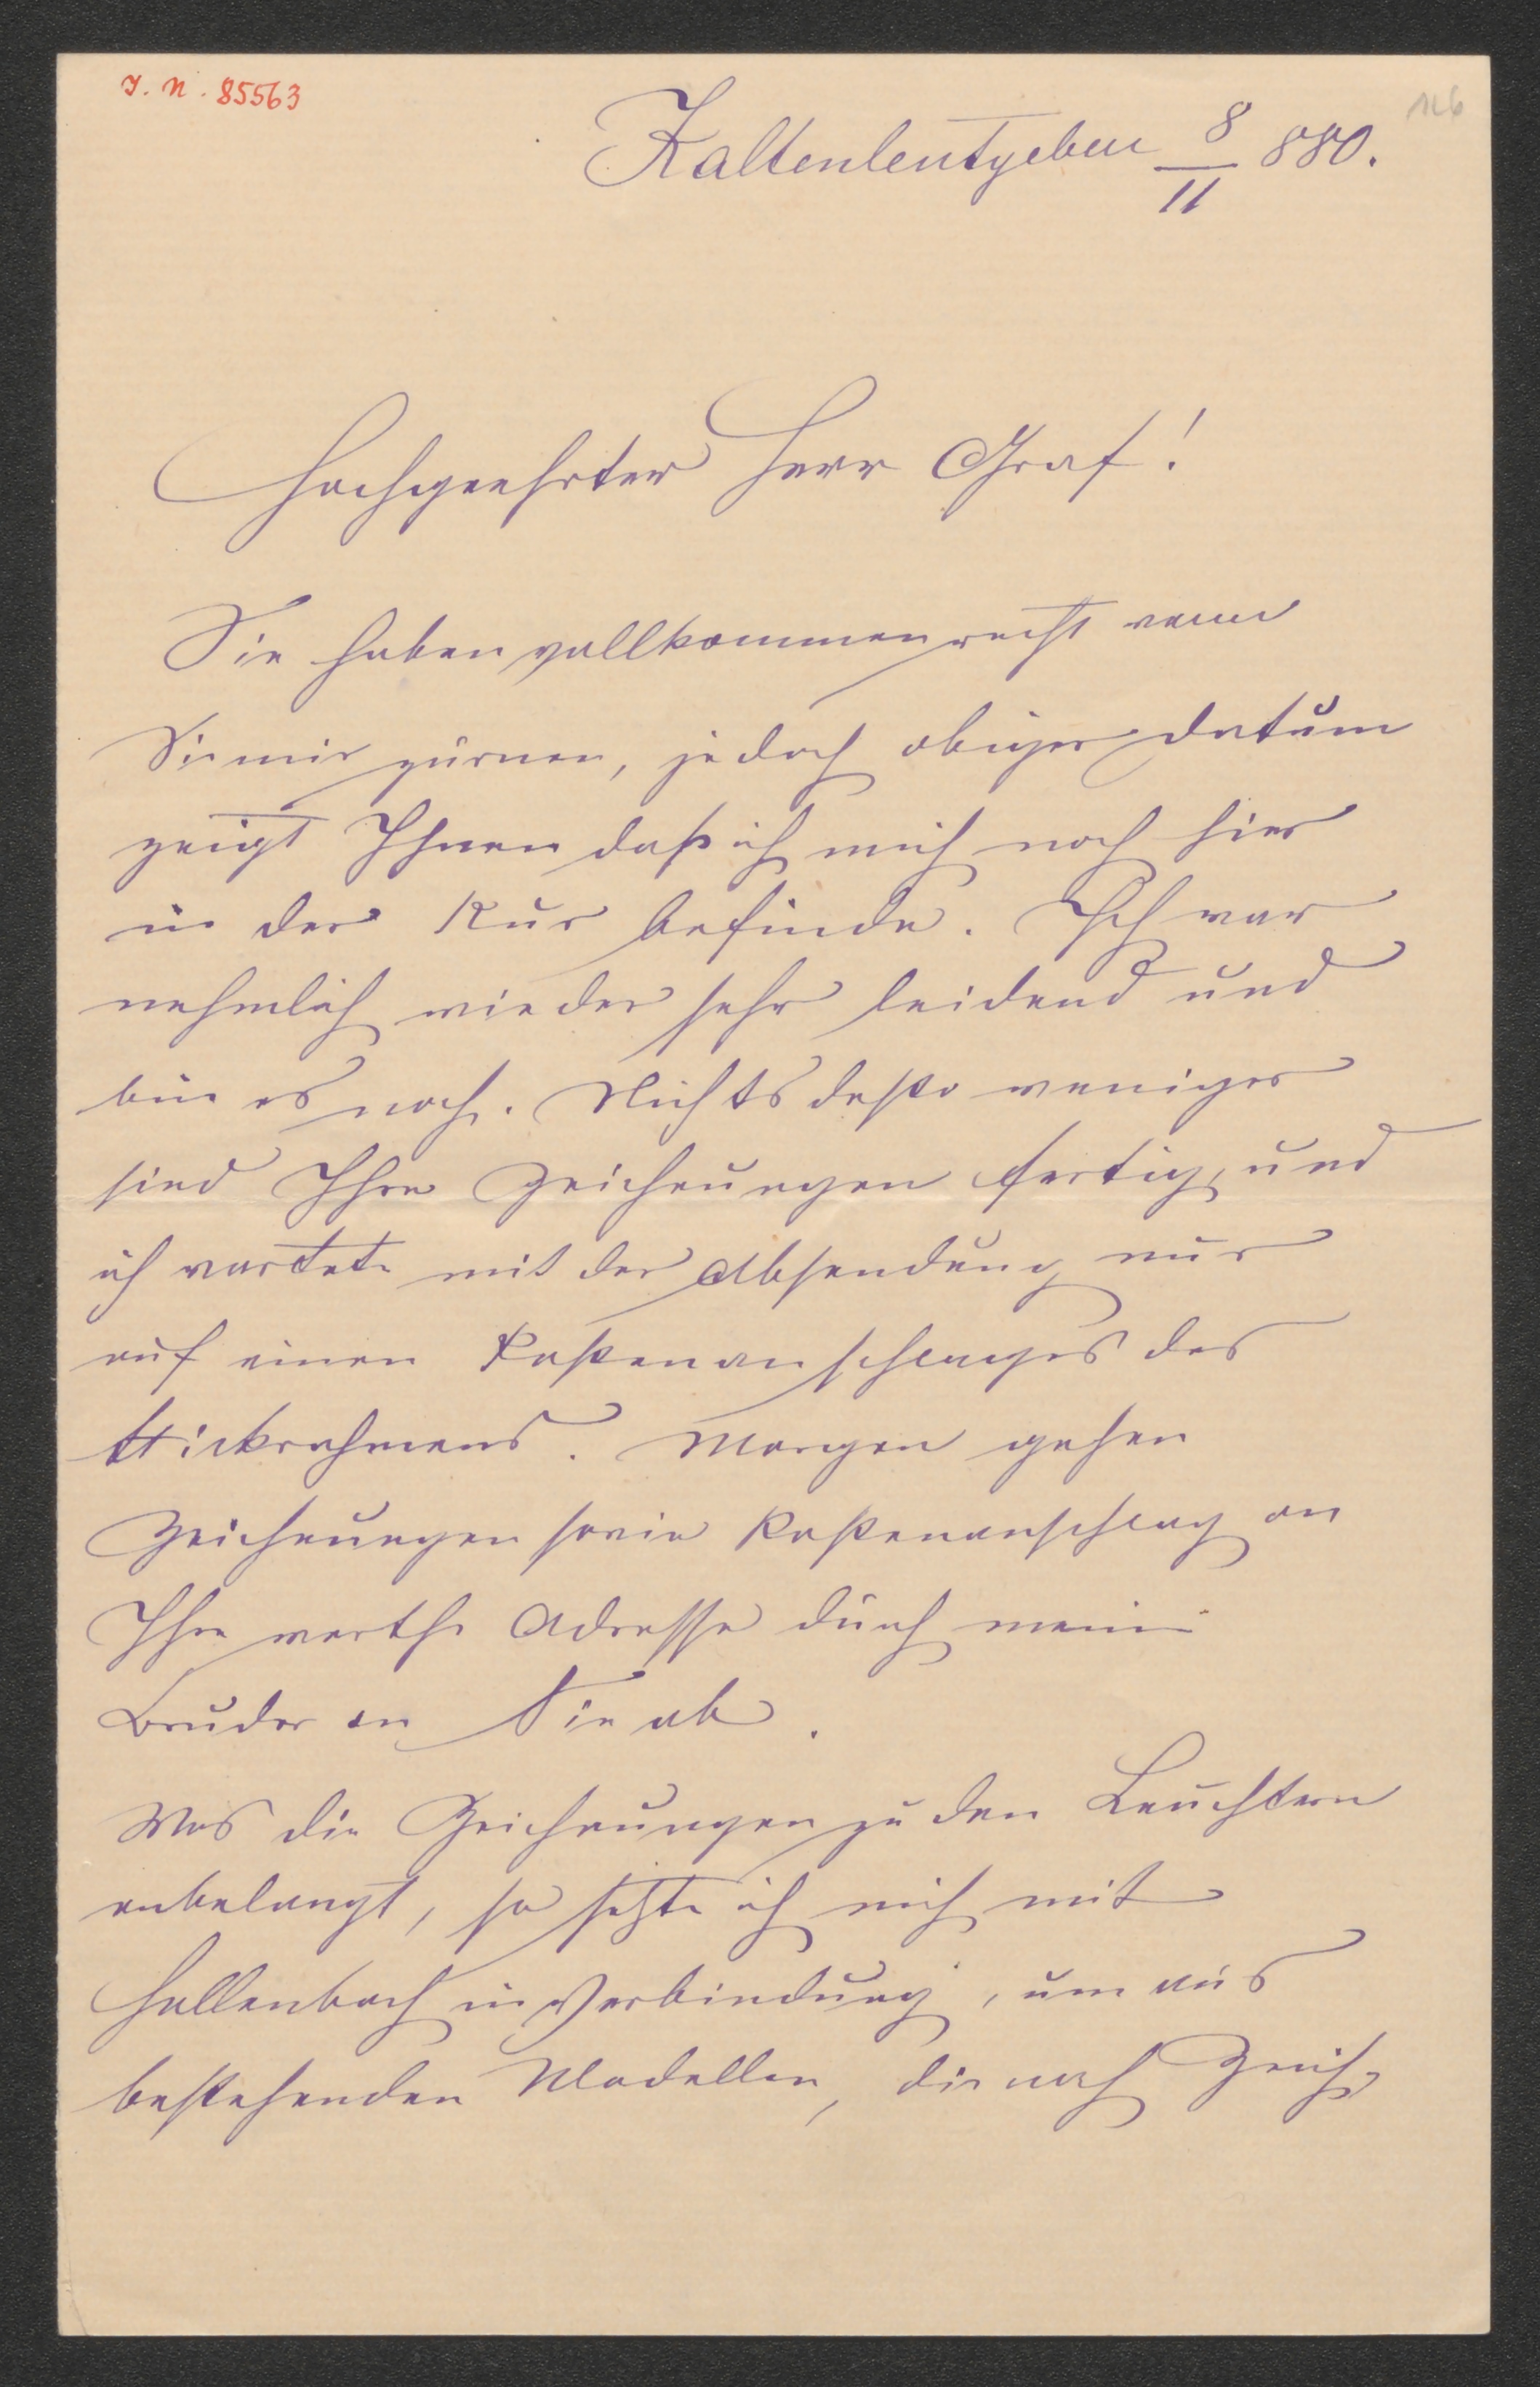 J. N. 85563
Kaltenleutgeben 8/11 880.
Hochgeehrter Herr Graf!
Sie haben vollkommen recht wenn
Sie mir zürnen, jedoch obiges Datum
zeigt Ihnen daß ich mich noch hier
in der Kur befinde. Ich war
nehmlich wieder sehr leidend und
bin es noch. Nichts desto weniger
sind Ihre Zeichnungen fertig, und
ich wartete mit der Absendung nur
auf einen Kostenanschlages des
Stickrahmens. Morgen gehen
Zeichnungen sowie Kostenanschlag an
Ihre werthe Adresse durch meine
Bruder an Sie ab.
Was die Zeichnungen zu den Leuchtern
anbelangt, so setzte ich mich mit
Hollenbach in Verbindung, um aus
bestehenden Modellen, die nach Zeich